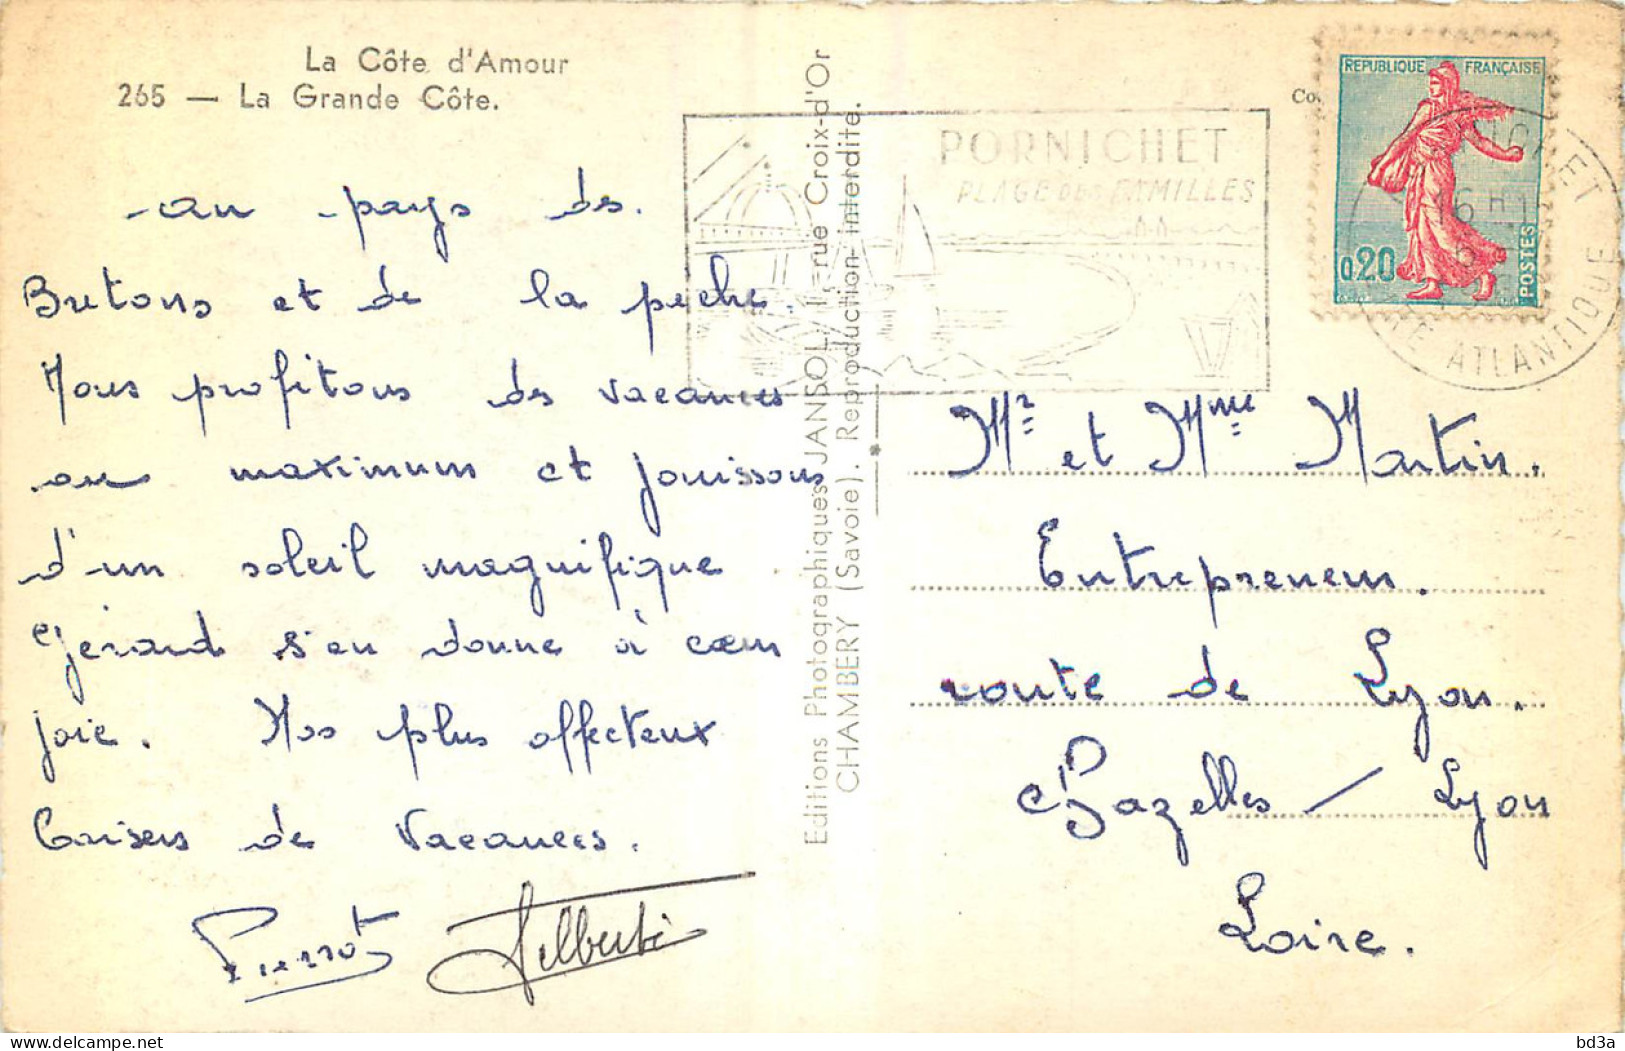 La Côte d'Amour
265 — La Grande Côte.
au pays des
Bretons et de la peche.
Nous profitons des vacances
au maximum et jouissons
d'un soleil magnifique
Gérard s'en donne à coeur
joie. Nos plus affecteux
baisers de vacances.
Pierrot
Editions Photographiques JANSOL, rue Croix-d'Or
CHAMBERY (Savoie). Reproduction interdite.
PORNICHET
PLAGE DES FAMILLES
REPUBLIQUE FRANÇAISE
0.20
POSTES
16 H
ATLANTIQUE
Mr et Mme Martin.
Entrepreneur.
route de Lyon.
Pazelles / Lyon
Loire.
bd3a